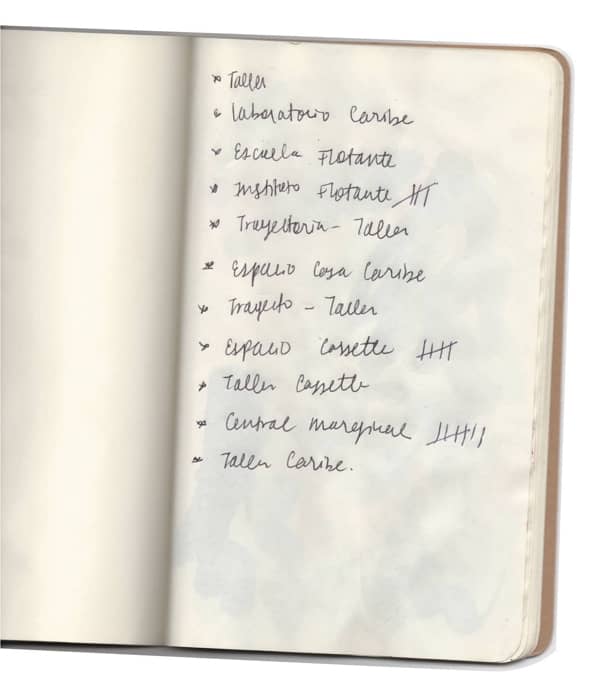 Taller
Laboratorio Caribe
Escuela Flotante
Instituto Flotante
Trayectoria - Taller
Espacio Casa Caribe
Trayecto - Taller
Espacio Cassette
Taller Cassette
Central marginal
Taller Caribe.